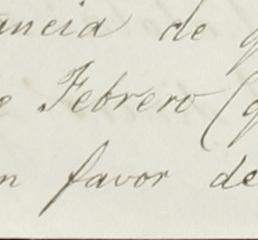 ancia de q
e Febrero (q
n favor de